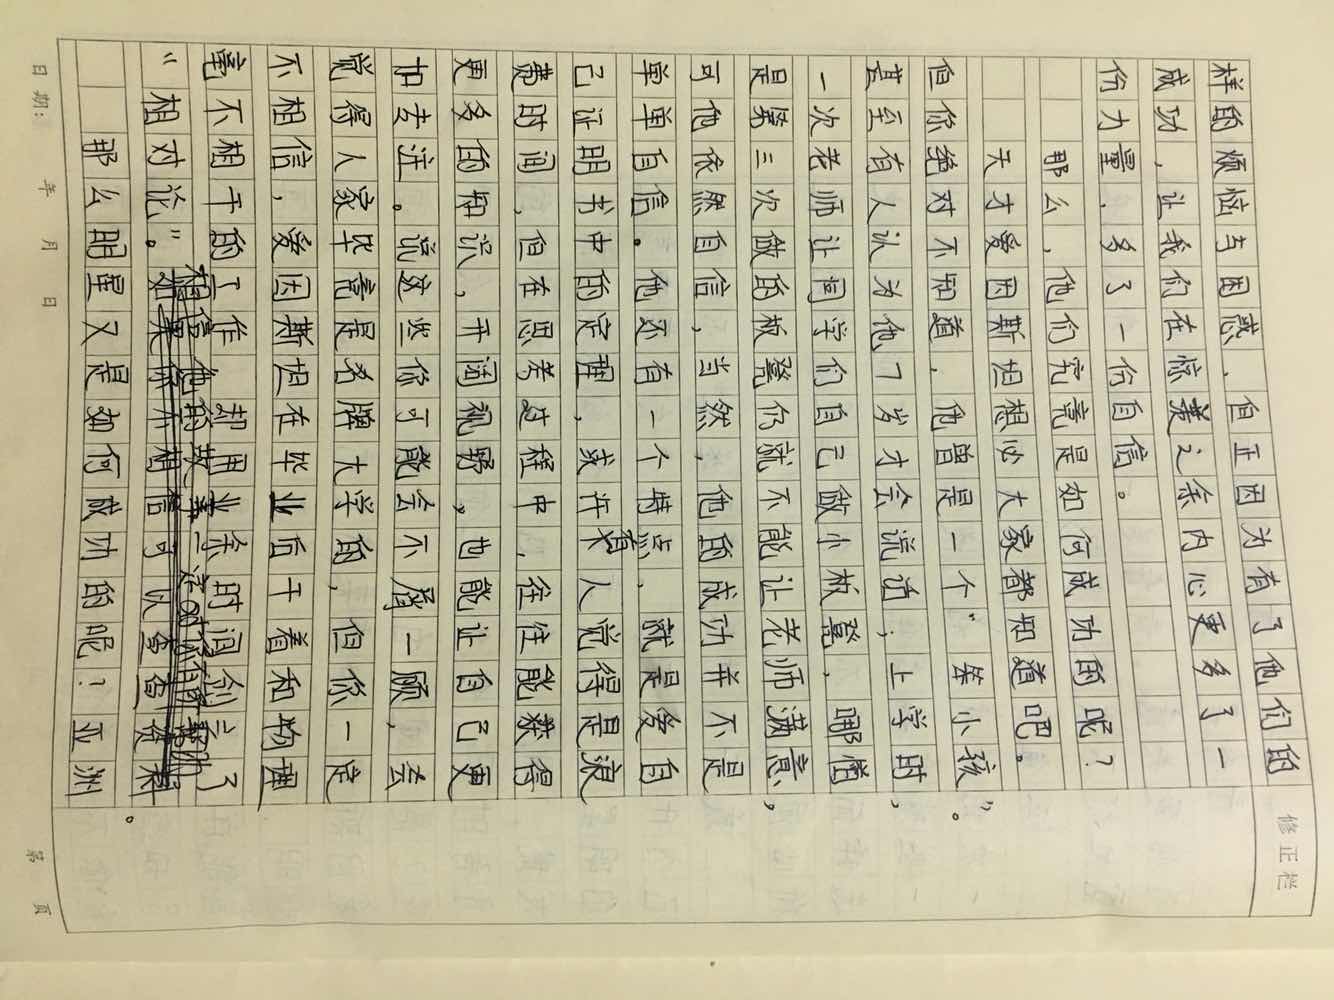 样的烦恼与困惑，但正因为有了他们的
成功，让我们在惊羡之余内心更多了一
份力量，多了一份自信。
那么，他们究竟是如何成功的呢？
天才爱因斯坦想必大家都知道吧。
但你绝对不知道，他曾是一个“笨小孩”。
甚至有人认为他7岁才会说话；上学时，
一次老师让同学们自己做小板凳，哪怕
是第三次做的板凳仍就不能让老师满意，
可他依然自信，当然，他的成功并不是
单单自信。他还有一个特点，就是爱自
己证明书中的定理，或许有人觉得是浪
费时间，但在思考过程中，往往能获得
更多的知识，开阔视野，也能让自己更
加专注。说这些你可能会不屑一顾，会
觉得人家毕竟是名牌大学的，但你一定
不相信，爱因斯坦在毕业后干着和物理
毫不相干的工作 却用业余时间创立了
“相对论”。相信他的故事一定对你有帮助。
那么明星又是如何成功的呢？亚洲
修正栏
日期: 年 月 日 第 页